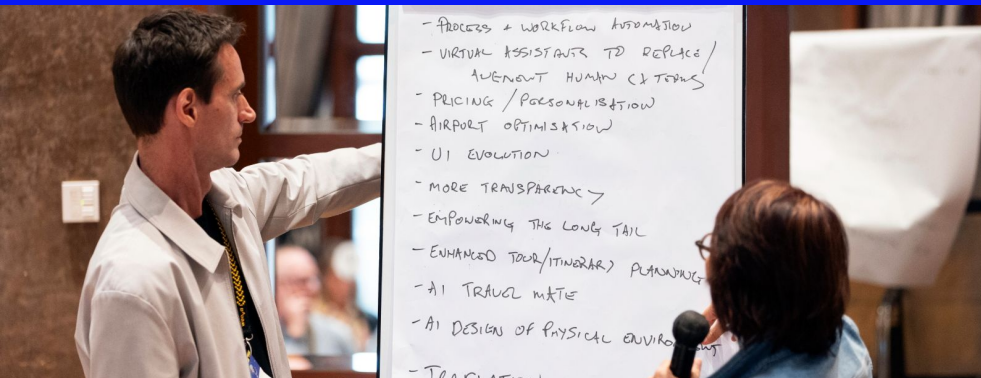 - PROCESS + WORKFLOW AUTOMATION
- VIRTUAL ASSISTANTS TO REPLACE/
AUGMENT HUMAN CX TEAMS
- PRICING / PERSONALISATION
- AIRPORT OPTIMISATION
- UI EVOLUTION
- MORE TRANSPARENCY
- EMPOWERING THE LONG TAIL
- ENHANCED TOUR/ITINERARY PLANNING
- AI TRAVEL MATE
- AI DESIGN OF PHYSICAL ENVIRONMENT